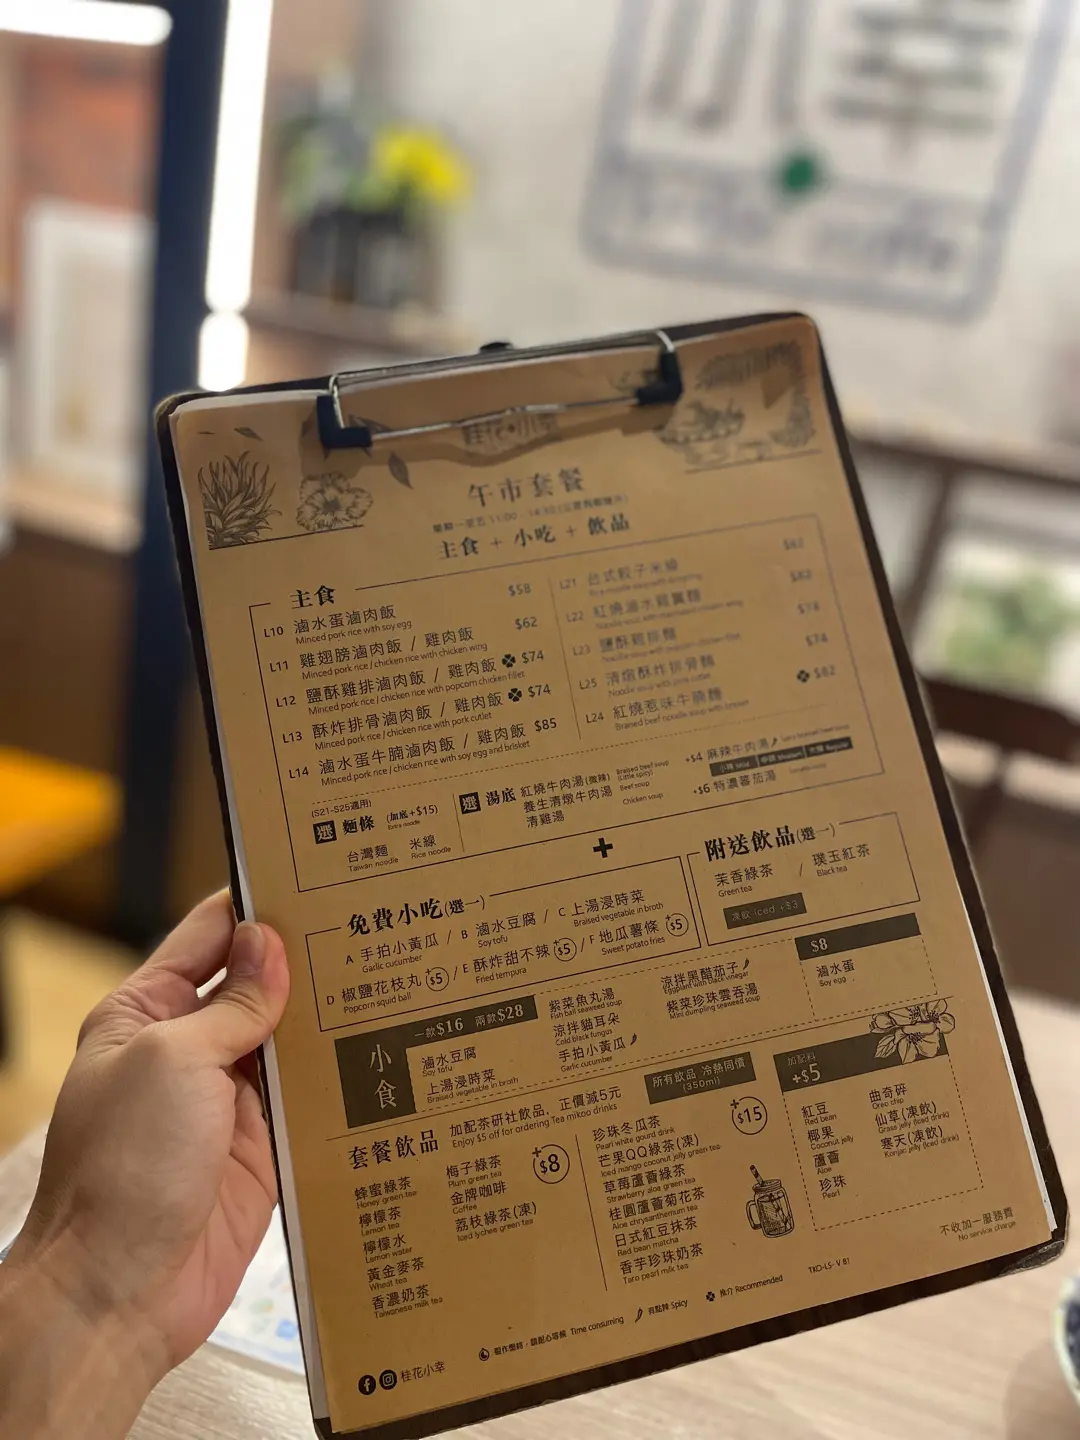 小幸
桂花小幸
午市套餐
主食 + 小吃 + 飲品
主食
L10 滷水蛋滷肉飯 $58
Minced pork rice with soy egg
L11 雞翅膀滷肉飯 / 雞肉飯 $62
Minced pork rice / chicken rice with chicken wing
L12 鹽酥雞排滷肉飯 / 雞肉飯 $74
Minced pork rice / chicken rice with popcorn chicken fillet
L13 酥炸排骨滷肉飯 / 雞肉飯 $74
Minced pork rice / chicken rice with pork cutlet
L14 滷水蛋牛腩滷肉飯 / 雞肉飯 $85
Minced pork rice / chicken rice with soy egg and brisket
L21 台式餃子米線 $62
L22 紅燒滷水雞翼麵
L23 鹽酥雞排麵 $74
L25 清燉酥炸排骨麵 $74
Noodle soup with pork cutlet
L24 紅燒惹味牛腩麵 $82
Braised beef noodle soup with brisket
(S21-S25適用)
選 麵條 (加底+$15)
Extra noodle
台灣麵 米線
Taiwan noodle Rice noodle
選 湯底 紅燒牛肉湯(微辣) Braised beef soup (Little spicy)
養生清燉牛肉湯 Beef soup
清雞湯 Chicken soup
+$4 麻辣牛肉湯
+$6 特濃蕃茄湯
+
免費小吃(選一)
A 手拍小黃瓜 / B 滷水豆腐 / C 上湯浸時菜
Garlic cucumber Soy tofu Braised vegetable in broth
D 椒鹽花枝丸 +$5 / E 酥炸甜不辣 +$5 / F 地瓜薯條 +$5
Popcorn squid ball Fried tempura Sweet potato fries
附送飲品(選一)
茉香綠茶 / 璞玉紅茶
Green tea Black tea
凍飲 iced +$3
小食
一款$16 兩款$28
滷水豆腐
Soy tofu
上湯浸時菜
Braised vegetable in broth
紫菜魚丸湯
Fish ball seaweed soup
涼拌貓耳朵
Cold black fungus
手拍小黃瓜
Garlic cucumber
涼拌黑醋茄子
Eggplant with black vinegar
紫菜珍珠雲吞湯
Mini dumpling seaweed soup
$8
滷水蛋
Soy egg
套餐飲品 加配茶研社飲品，正價減5元
Enjoy $5 off for ordering Tea mikoo drinks
所有飲品 冷熱同價
(350ml)
+$8
蜂蜜綠茶
Honey green tea
檸檬茶
Lemon tea
檸檬水
Lemon water
黃金麥茶
Wheat tea
香濃奶茶
Taiwanese milk tea
梅子綠茶
Plum green tea
金牌咖啡
Coffee
荔枝綠茶(凍)
Iced lychee green tea
+$15
珍珠冬瓜茶
Pearl white gourd drink
芒果QQ綠茶(凍)
Iced mango coconut jelly green tea
草莓蘆薈綠茶
Strawberry aloe green tea
桂圓蘆薈菊花茶
Aloe chrysanthemum tea
日式紅豆抹茶
Red bean matcha
香芋珍珠奶茶
Taro pearl milk tea
加配料
+$5
紅豆
Red bean
椰果
Coconut jelly
蘆薈
Aloe
珍珠
Pearl
曲奇碎
Oreo chip
仙草(凍飲)
Grass jelly (Iced drink)
寒天(凍飲)
Konjac jelly (Iced drink)
不收加一服務費
No service charge
桂花小幸
Time consuming
有點辣 Spicy
推介 Recommended
TKO-LS- V 81